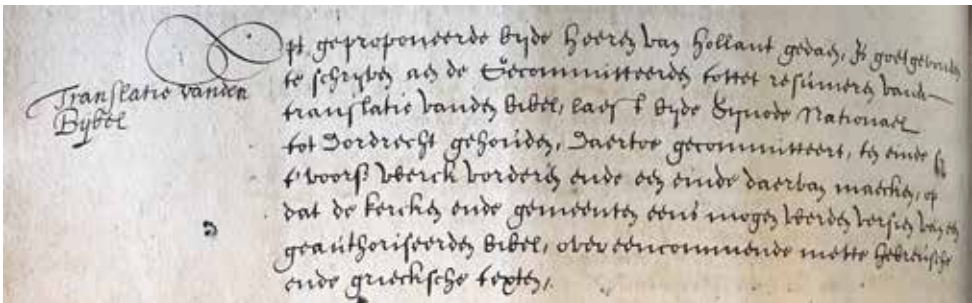 Translatie vanden
Bybel
Opt geproponeerde byde Heeren van Hollant gedaen, Is goetgevonden
te schryven aen de Gecommitteerden tottet resumeren vande
translatie vanden bibel, laest byde Synode Nationael
tot Dordrecht gehouden, daertoe gecommitteert, ten einde sy
t'voors werck vorderen ende een einde daervan maecken, op
dat de kercken ende gemeenten eens mogen werden versien van een
geauthoriseerden bibel, overeencommende mette hebreusche
ende griecksche texten,